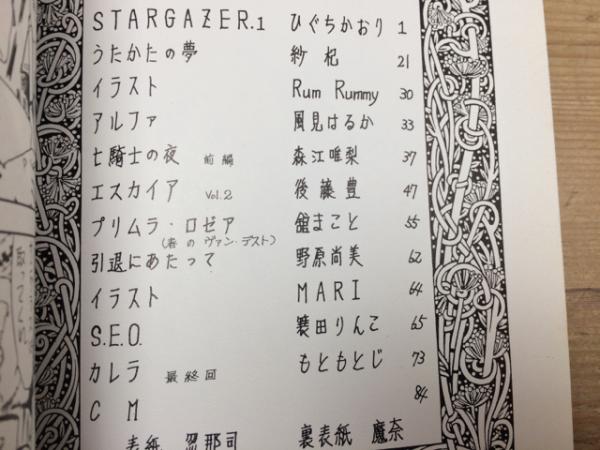 STARGAZER.1 ひぐちかおり 1
うたかたの夢 紗杞 21
イラスト Rum Rummy 30
アルファ 風見はるか 33
七騎士の夜 前編 森江唯梨 37
エスカイア Vol.2 後藤豊 47
プリムラ・ロゼア 舘まこと 55
(春のヴァン・デスト)
引退にあたって 野原尚美 62
イラスト MARI 64
S.E.O. 簑田りんこ 65
カレラ 最終回 もともとじ 73
CM 84
表紙 忍那司 裏表紙 魔奈